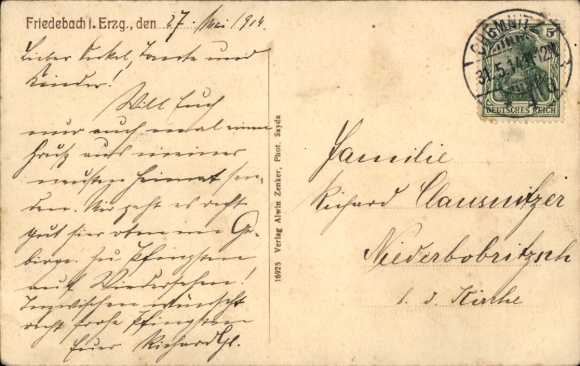 Friedebach i. Erzg., den 27. Mai 1914.
Lieber Onkel, Tante und
Kinder!
Will Euch
nur auch mal einen
Gruß aus meiner
neusten Heimat sen-
den. Mir geht es recht
gut hier oben im Ge-
birge. Zu Pfingsten
auf Wiedersehen!
Inzwischen wünscht
recht frohe Pfingsten
Euer Richard
16925 Verlag Alwin Zenker, Phot. Sayda
CHEMNITZ
31.5.14
5
DEUTSCHES REICH
Familie
Richard Clausnitzer
Niederbobritzsch
b. d. Kirche